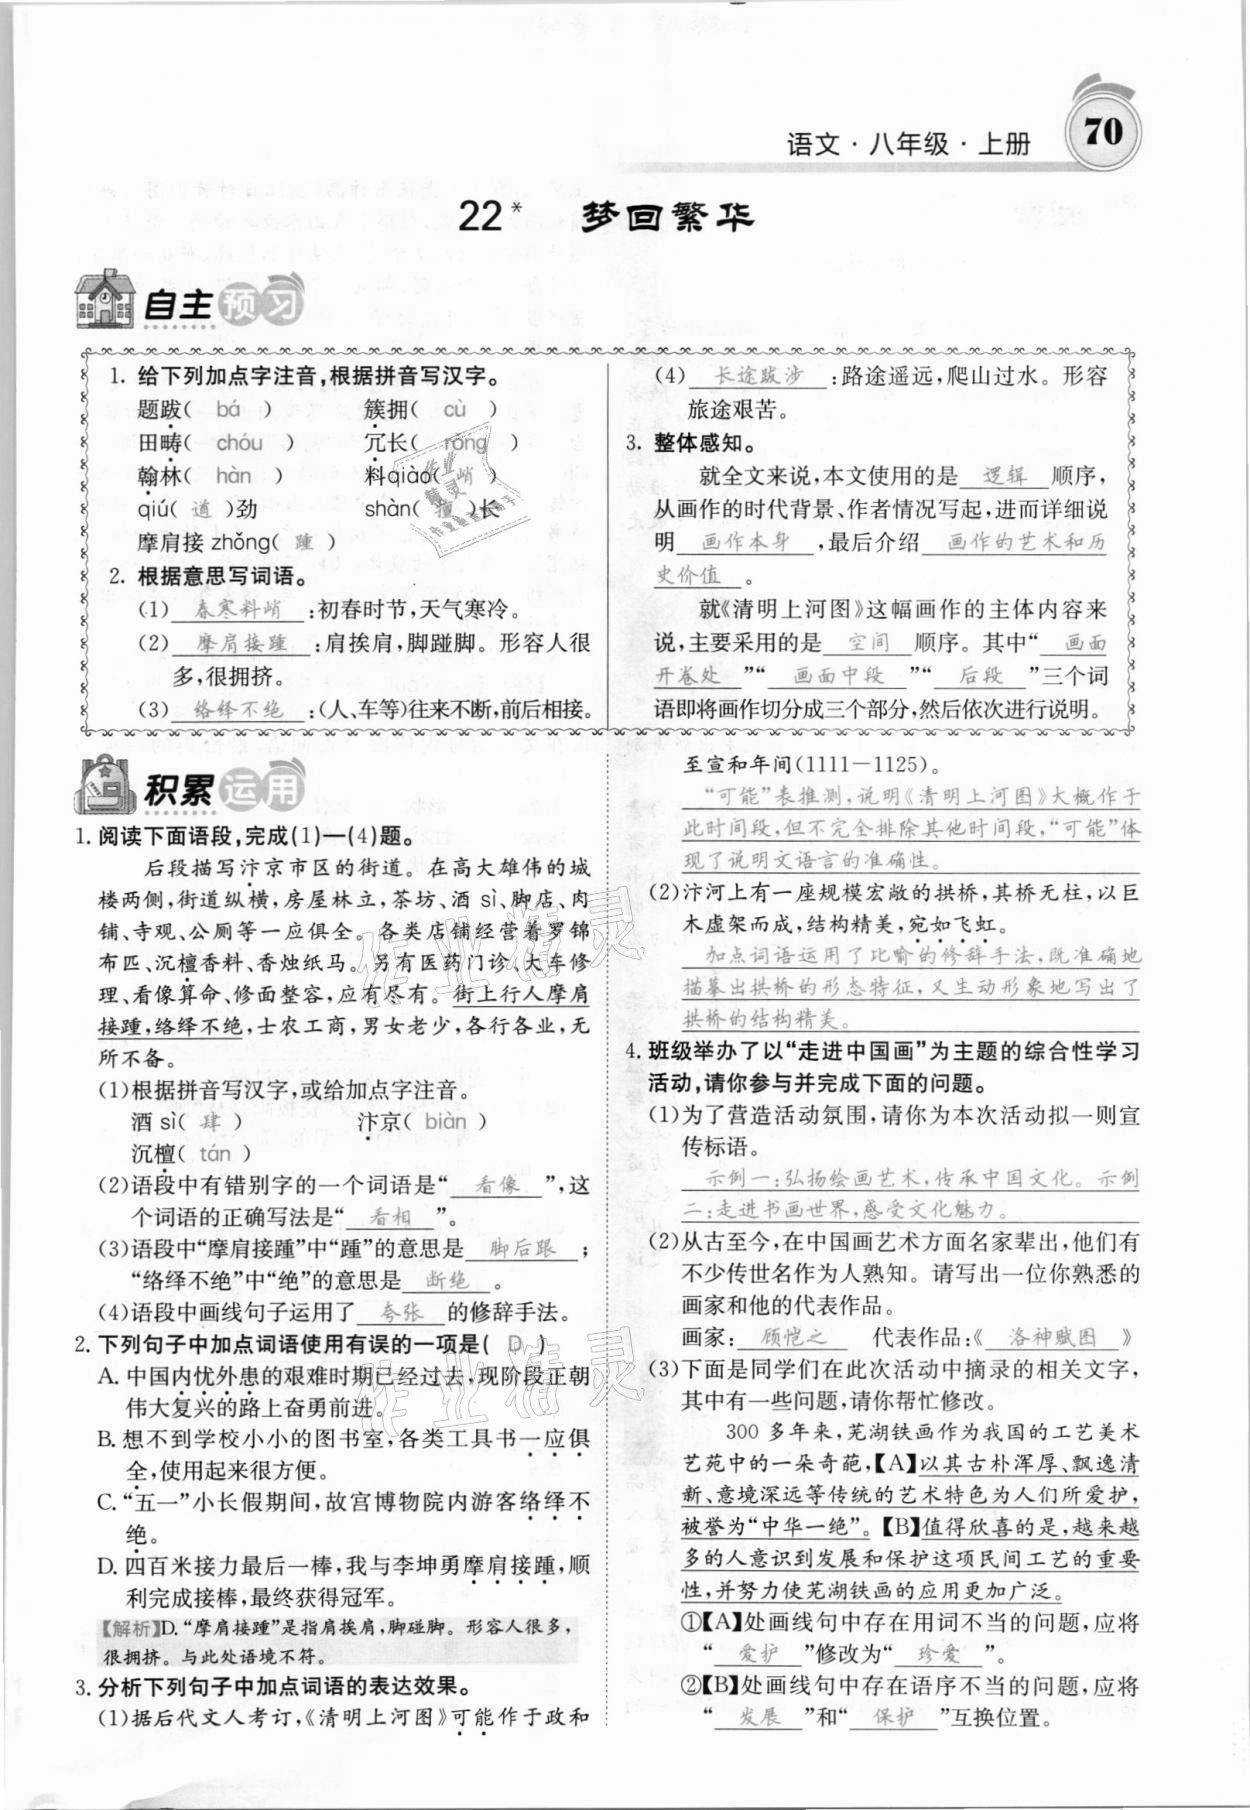 语文·八年级·上册
70
22* 梦回繁华
自主预习
1. 给下列加点字注音,根据拼音写汉字。
题跋( bá ) 簇拥( cù )
田畴( chóu ) 冗长( rǒng )
翰林( hàn ) 料qiào( 峭 )
qiú( 遒 )劲 shàn( 擅 )长
摩肩接zhǒng( 踵 )
2. 根据意思写词语。
(1) 春寒料峭 :初春时节,天气寒冷。
(2) 摩肩接踵 :肩挨肩,脚碰脚。形容人很
多,很拥挤。
(3) 络绎不绝 :(人、车等)往来不断,前后相接。
(4) 长途跋涉 :路途遥远,爬山过水。形容
旅途艰苦。
3. 整体感知。
就全文来说,本文使用的是 逻辑 顺序,
从画作的时代背景、作者情况写起,进而详细说
明 画作本身 ,最后介绍 画作的艺术和历
史价值 。
就《清明上河图》这幅画作的主体内容来
说,主要采用的是 空间 顺序。其中“ 画面
开卷处 ”“ 画面中段 ”“ 后段 ”三个词
语即将画作切分成三个部分,然后依次进行说明。
积累运用
1. 阅读下面语段,完成(1)—(4)题。
后段描写汴京市区的街道。在高大雄伟的城
楼两侧,街道纵横,房屋林立,茶坊、酒 sì、脚店、肉
铺、寺观、公厕等一应俱全。各类店铺经营着罗锦
布匹、沉檀香料、香烛纸马。另有医药门诊、大车修
理、看像算命、修面整容,应有尽有。街上行人摩肩
接踵,络绎不绝,士农工商,男女老少,各行各业,无
所不备。
(1)根据拼音写汉字,或给加点字注音。
酒 sì( 肆 ) 汴京( biàn )
沉檀( tán )
(2)语段中有错别字的一个词语是“ 看像 ”,这
个词语的正确写法是“ 看相 ”。
(3)语段中“摩肩接踵”中“踵”的意思是 脚后跟 ;
“络绎不绝”中“绝”的意思是 断绝 。
(4)语段中画线句子运用了 夸张 的修辞手法。
2. 下列句子中加点词语使用有误的一项是( D )
A. 中国内忧外患的艰难时期已经过去,现阶段正朝
伟大复兴的路上奋勇前进。
B. 想不到学校小小的图书室,各类工具书一应俱
全,使用起来很方便。
C. “五一”小长假期间,故宫博物院内游客络绎不
绝。
D. 四百米接力最后一棒,我与李坤勇摩肩接踵,顺
利完成接棒,最终获得冠军。
【解析】D.“摩肩接踵”是指肩挨肩,脚碰脚。形容人很多,
很拥挤。与此处语境不符。
3. 分析下列句子中加点词语的表达效果。
(1)据后代文人考订,《清明上河图》可能作于政和
至宣和年间(1111—1125)。
“可能”表推测,说明《清明上河图》大概作于
此时间段,但不完全排除其他时间段,“可能”体
现了说明文语言的准确性。
(2)汴河上有一座规模宏敞的拱桥,其桥无柱,以巨
木虚架而成,结构精美,宛如飞虹。
加点词语运用了比喻的修辞手法,既准确地
描摹出拱桥的形态特征,又生动形象地写出了
拱桥的结构精美。
4. 班级举办了以“走进中国画”为主题的综合性学习
活动,请你参与并完成下面的问题。
(1)为了营造活动氛围,请你为本次活动拟一则宣
传标语。
示例一:弘扬绘画艺术,传承中国文化。示例
二:走进书画世界,感受文化魅力。
(2)从古至今,在中国画艺术方面名家辈出,他们有
不少传世名作为人熟知。请写出一位你熟悉的
画家和他的代表作品。
画家: 顾恺之 代表作品:《 洛神赋图 》
(3)下面是同学们在此次活动中摘录的相关文字,
其中有一些问题,请你帮忙修改。
300 多年来,芜湖铁画作为我国的工艺美术
艺苑中的一朵奇葩,【A】以其古朴浑厚、飘逸清
新、意境深远等传统的艺术特色为人们所爱护,
被誉为“中华一绝”。【B】值得欣喜的是,越来越
多的人意识到发展和保护这项民间工艺的重要
性,并努力使芜湖铁画的应用更加广泛。
①【A】处画线句中存在用词不当的问题,应将
“ 爱护 ”修改为“ 珍爱 ”。
②【B】处画线句中存在语序不当的问题,应将
“ 发展 ”和“ 保护 ”互换位置。
作业精灵
作业精灵